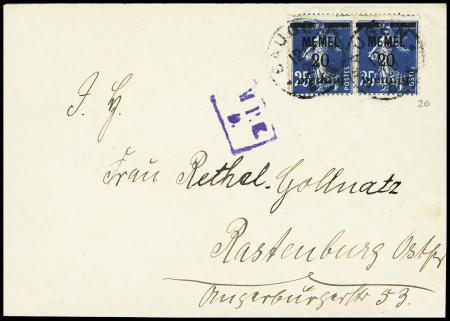 MEMEL MEMEL
20 20
Pfennig Pfennig
25c POSTES 25c POSTES
20
Frau Rethel-Gollnatz
Rastenburg Ostpr
Angerburgerstr 53.